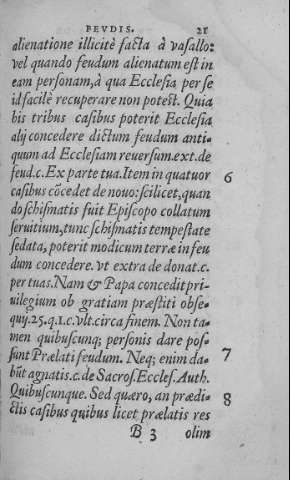 FEVDIS. 21
alienatione illicitè facta à vasallo:
vel quando feudum alienatum est in
eam personam, à qua Ecclesia per se
id facilè recuperare non potest. Quia
his tribus casibus poterit Ecclesia
alij concedere dictum feudum anti-
quum ad Ecclesiam reuersum.ext.de
feud.c. Ex parte tua. Item in quatuor 6
casibus cõcedet de nouo: scilicet, quan
do schismatis fuit Episcopo collatum
seruitium, tunc schismatis tempestate
sedata, poterit modicum terræ in feu
dum concedere. vt extra de donat.c.
per tuas. Nam & Papa concedit pri-
uilegium ob gratiam præstiti obse-
quij.25.q.1.c.vlt.circa finem. Non ta-
men quibuscunq; personis dare pos-
sunt Prælati feudum. Neq; enim da- 7
bũt agnatis.c.de Sacros.Eccles.Auth.
Quibuscunque. Sed quæro, an prædi- 8
ctis casibus quibus licet prælatis res
B 3 olim